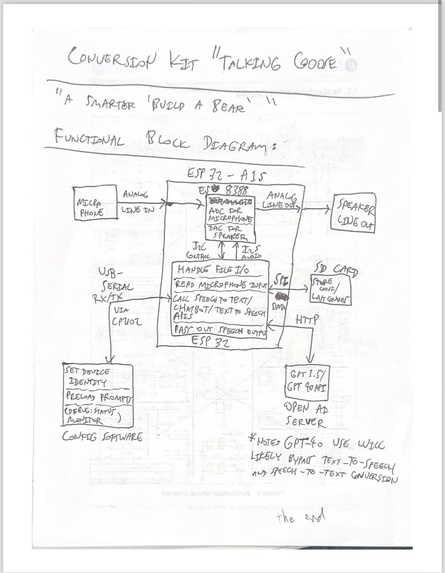 CONVERSION KIT "TALKING GOOSE"
"A SMARTER 'BUILD A BEAR' "
FUNCTIONAL BLOCK DIAGRAM:
ESP 32 - A1S
ES 8388
MICRO
PHONE
ANALOG
LINE IN
ADC FOR
MICROPHONE
DAC FOR
SPEAKER
ANALOG
LINE OUT
SPEAKER
LINE OUT
I2C
CONTROL
I2S
AUDIO
USB-
SERIAL
RX/TX
VIA
CP2102
HANDLE FILE I/O
READ MICROPHONE INPUT
CALL SPEECH TO TEXT/
CHATBOT/ TEXT TO SPEECH
APIS
PASS OUT SPEECH OUTPUT
ESP 32
SPI
DATA
SD CARD
STORE
CONF/
LAST CONVOS
HTTP
SET DEVICE
IDENTITY
PRELOAD PROMPTS
(DEBUG: STATUS
MONITOR)
CONFIG SOFTWARE
GPT 3.5/
GPT 4o API
OPEN AI
SERVER
*NOTE: GPT-4o USE WILL
LIKELY BYPASS TEXT-TO-SPEECH
AND SPEECH-TO-TEXT CONVERSION
the end